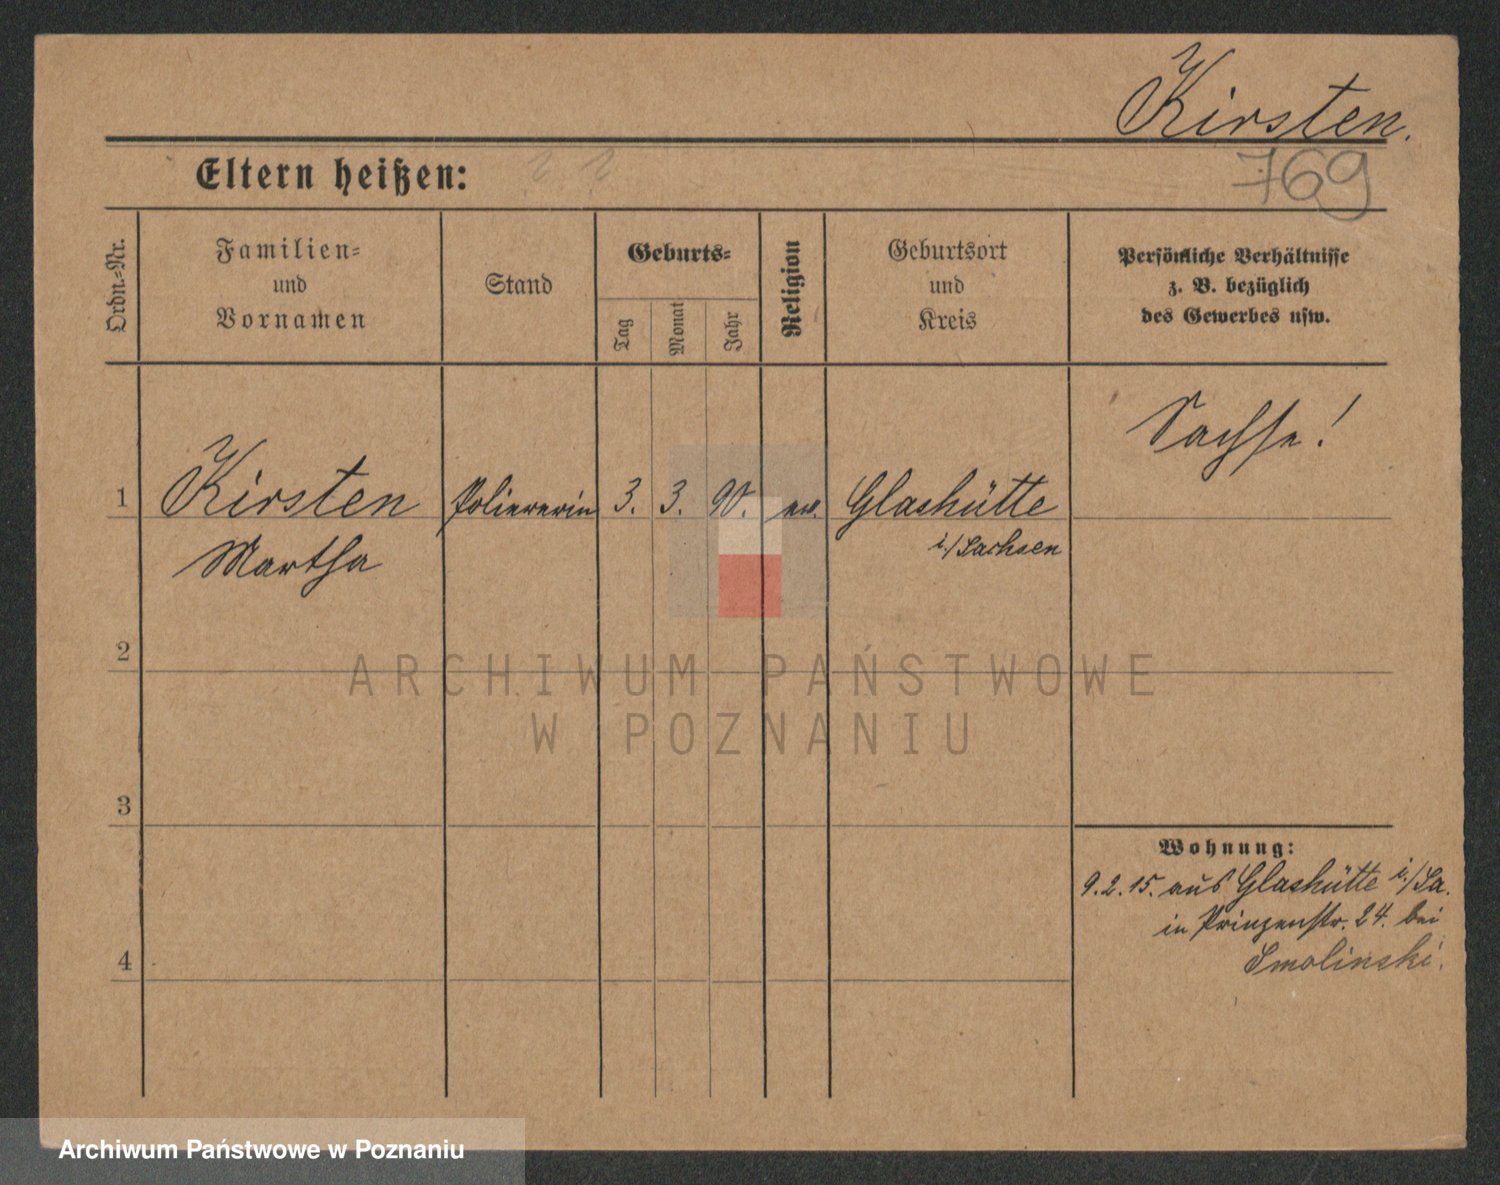 Kirsten.
769
Eltern heißen:
Ordn.=Nr.
Familien=
und
Vornamen
Stand
Geburts=
Tag
Monat
Jahr
Religion
Geburtsort
und
Kreis
Persönliche Verhältnisse
z. B. bezüglich
des Gewerbes usw.
Sachse!
1 Kirsten Poliererin 3. 3. 90. ev. Glashütte
i/Sachsen
Martha
2
ARCHIWUM PAŃSTWOWE
W POZNANIU
3
Wohnung:
9.2.15. aus Glashütte i./Sa.
in Prinzenstr. 24. bei
Smolinski.
4
Archiwum Państwowe w Poznaniu